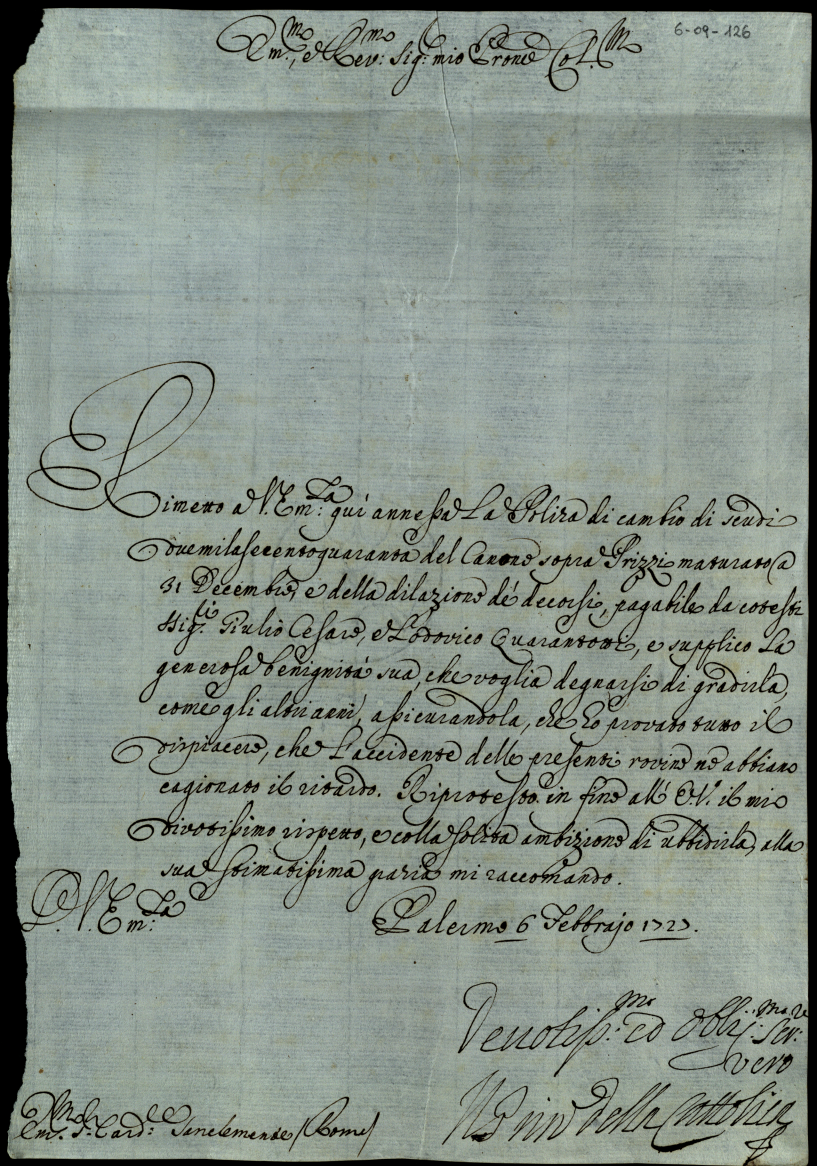 6-09-126
Em.mo, e Rev.mo Sig.r mio Prone Col.mo
Rimetto a V. Em.za qui annessa la Poliza di cambio di scudi
duemilasecentoquaranta del Canone sopra Prizzi maturato a
31 Decembre, e della dilazione de' decorsi, pagabile da cotesti
Sig.ri Giulio Cesare, e Lodovico Quarantotti, e supplico la
generosa benignità sua, che voglia degnarsi di gradirla,
come gli altri anni, assicurandola, che hò provato tutto il
dispiacere, che l'accidente delle presenti rovine ne abbiano
cagionato il ritardo. Riprotesto in fine all' E.V. il mio
divotissimo rispetto, e colla solita ambizione di ubbidirla, alla
sua stimatissima grazia mi raccomando.
D. V. Em.za Palermo 6 Febbrajo 1727.
Devotiss.mo ed Obblig.mo Ser.re
vero
Il Prin della Cattolica
Em.mo S.r Card.le Sanclemente (Roma)